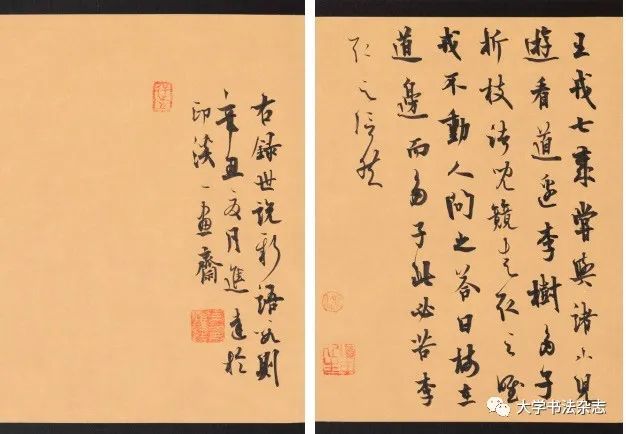 王戎七歲嘗與諸小兒
遊看道邊李樹多子
折枝諸兒競走取之唯
戎不動人問之答曰樹在
道邊而多子此必苦李
取之信然
右錄世說新語則
辛丑夏月進達於
印溪一畫齋
大学书法杂志